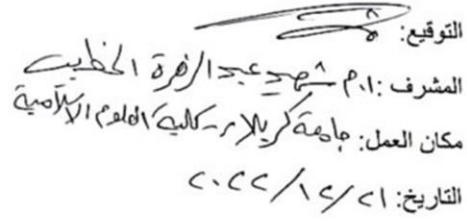 التوقيع:
المشرف : ا.م شهيد عبد الزهرة الخطيب
مكان العمل: جامعة كربلاء - كلية العلوم الاسلامية
التاريخ: ٢٠٢٢/١٢/٢١